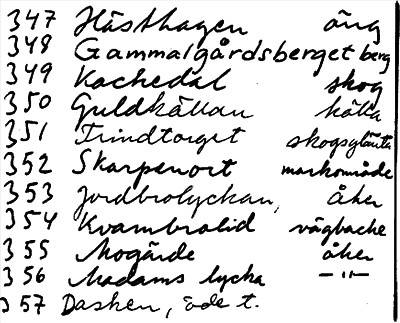 347 Hästhagen äng
348 Gammalgårdsberget berg
349 Kachedal skog
350 Guldkällan källa
351 Trindtorget skogsglänta
352 Skarpenort markområde
353 Jordbrolyckan, åker
354 Kvarnbrolid vägbacke
355 Mogärde åker
356 Madams lycka -"-
357 Dasken, öde t.